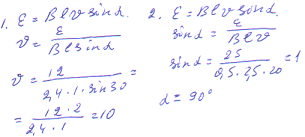 1. ε = Blv sin α.
v = ε / Bl sin α
v = 12 / 2,4 · 1 · sin 30 =
= 12 · 2 / 2,4 · 1 = 10
2. ε = Blv sin α.
sin α = ε / Blv
sin α = 25 / 0,5 · 2,5 · 20 = 1
α = 90°